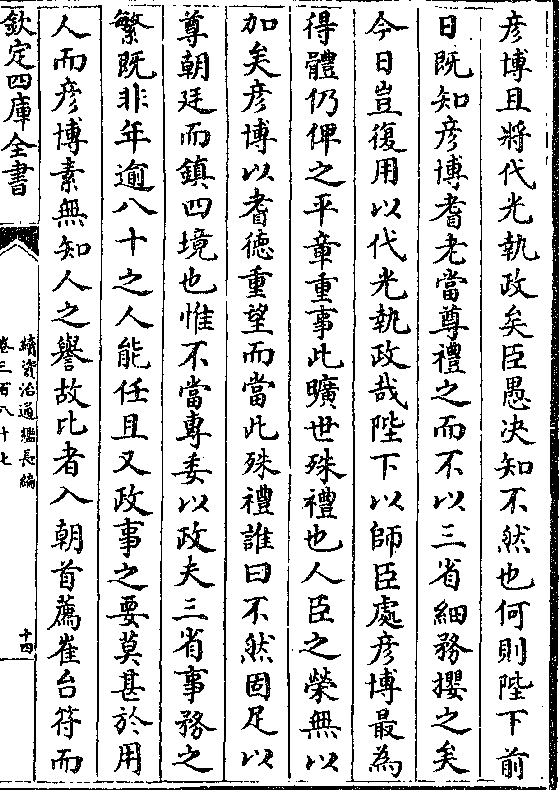 彦博且將代光執政矣臣愚决知不然也何則陛下前
日既知彦博耆老當尊禮之而不以三省細務攖之矣
今日豈復用以代光執政哉陛下以師臣處彦博最為
得體仍俾之平章重事此曠世殊禮也人臣之榮無以
加矣彦博以耆德重望而當此殊禮誰曰不然固足以
尊朝廷而鎮四境也惟不當專委以政夫三省事務之
繁既非年逾八十之人能任且又政事之要莫甚於用
人而彦博素無知人之譽故比者入朝首薦崔台符而
欽定四庫全書
續資治通鑑長編
卷三百八十七
十四